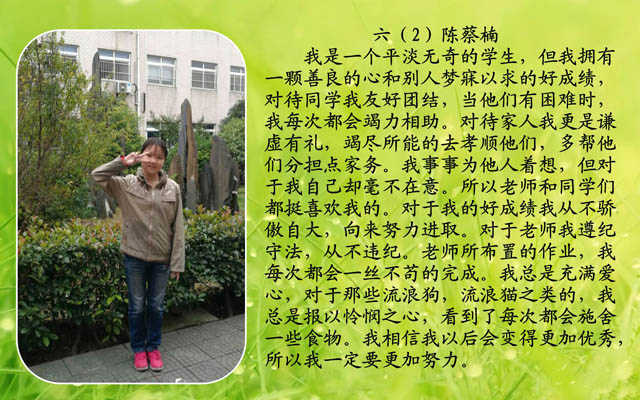 六（2）陈蔡楠
我是一个平淡无奇的学生，但我拥有
一颗善良的心和别人梦寐以求的好成绩，
对待同学我友好团结，当他们有困难时，
我每次都会竭力相助。对待家人我更是谦
虚有礼，竭尽所能的去孝顺他们，多帮他
们分担点家务。我事事为他人着想，但对
于我自己却毫不在意。所以老师和同学们
都挺喜欢我的。对于我的好成绩我从不骄
傲自大，向来努力进取。对于老师我遵纪
守法，从不违纪。老师所布置的作业，我
每次都会一丝不苟的完成。我总是充满爱
心，对于那些流浪狗，流浪猫之类的，我
总是报以怜悯之心，看到了每次都会施舍
一些食物。我相信我以后会变得更加优秀，
所以我一定要更加努力。